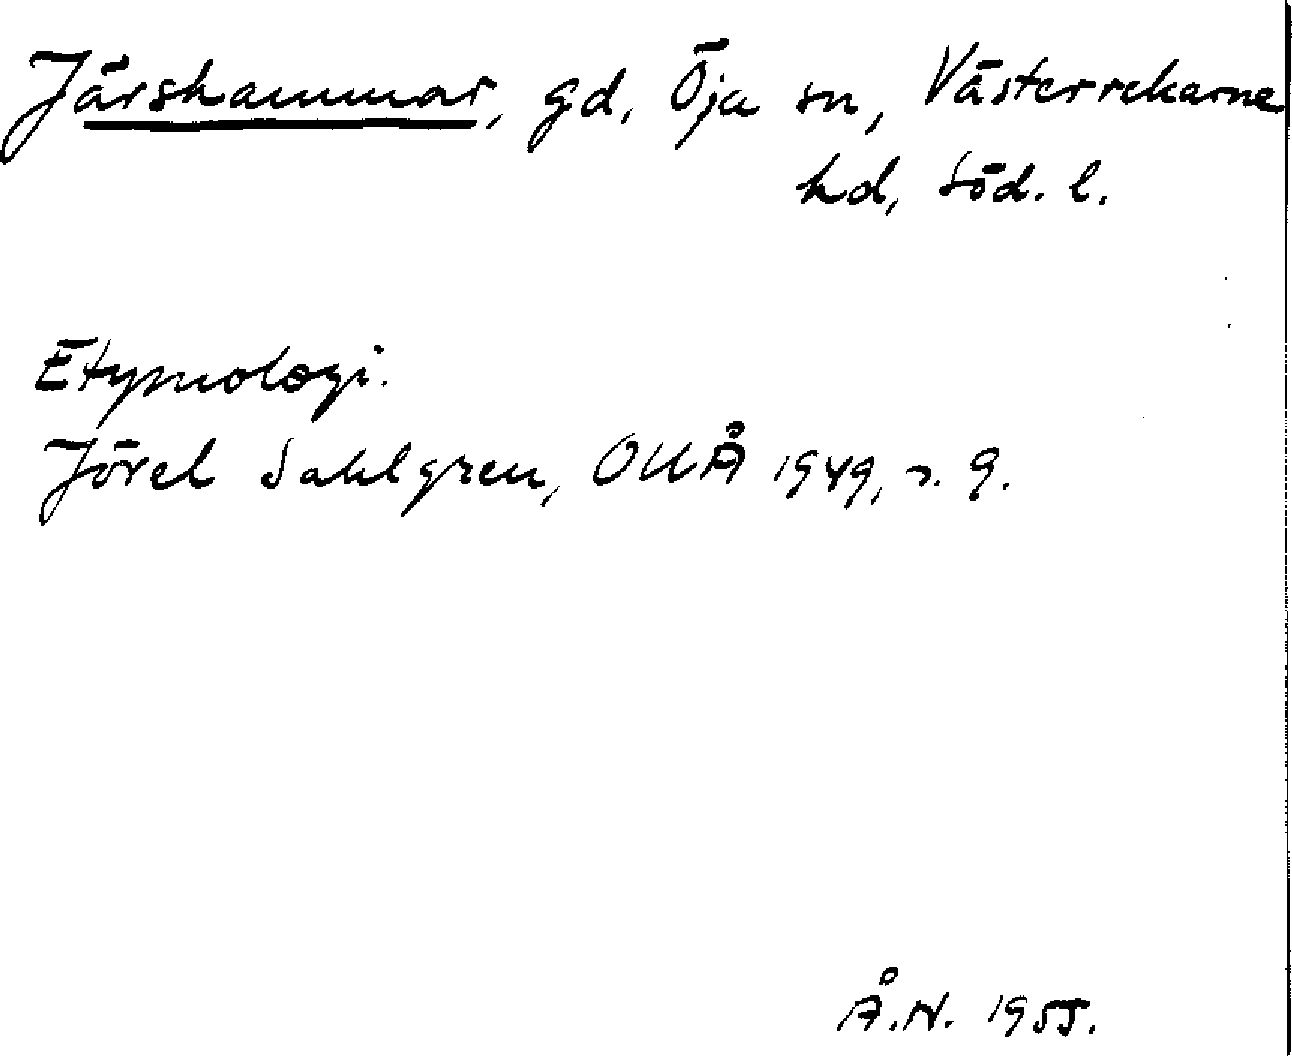 Järshammar, gd, Öja sn, Västerrekarne
hd, Söd. l.
Etymologi.
Jörel Sahlgren, OUÅ 1949, s. 9.
Å.N. 1955.